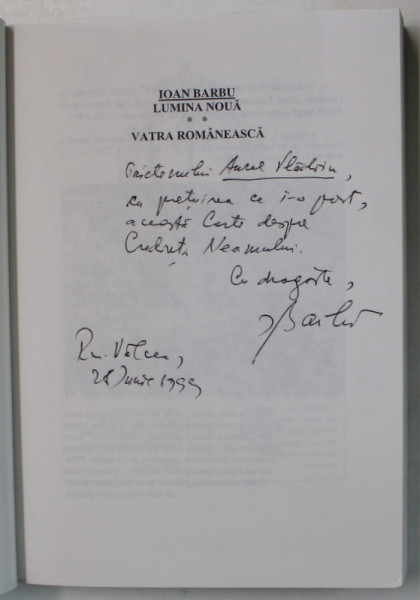 IOAN BARBU
LUMINA NOUĂ
* *
VATRA ROMÂNEASCĂ
Prietenului Aurel
cu prețuirea ce i-o port,
această Carte despre
Credința Neamului.
Cu dragoste,
IBarbu
Rm. Vâlcea,
28 Iunie 1999